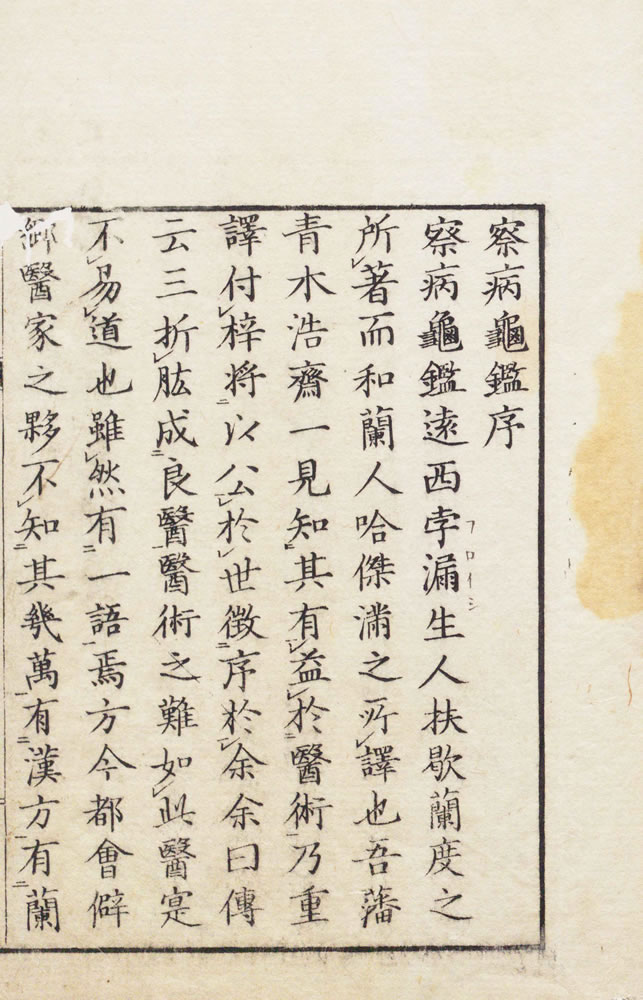 察病龜鑑序
察病龜鑑遠西孛漏生人扶歇蘭度之
所著而和蘭人哈傑滿之所譯也吾藩
青木浩齋一見知其有益於醫術乃重
譯付梓將以公於世徴序於余余曰傳
云三折肱成良醫醫術之難如此醫寔
不易道也雖然有一語焉方今都會僻
鄉醫家之夥不知其幾萬有漢方有蘭